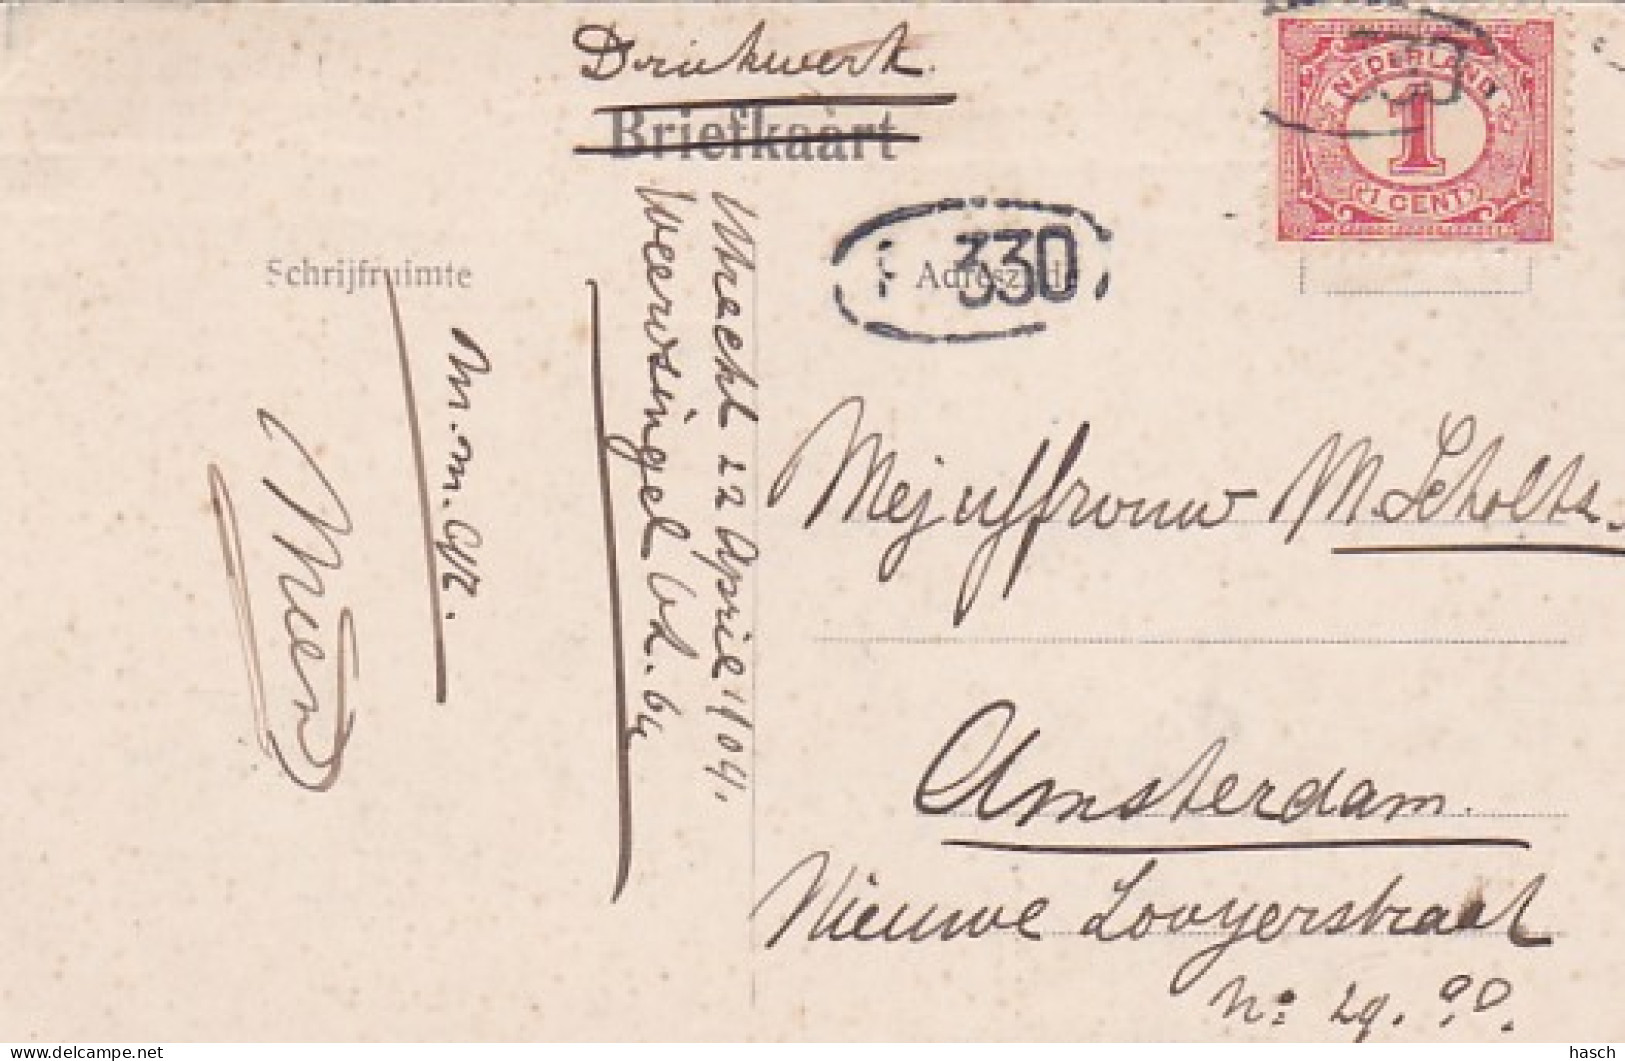 Drukwerk.
Briefkaart
NEDERLAND
1
1 CENT
330
Schrijfruimte
Adreszijde
Utrecht 22 April '04.
Weerdsingel O.Z. 64
M. m. gr.
Mien
Mejuffrouw M. Scholts.
Amsterdam.
Nieuwe Looyerstraat
No: 29.
hasch
delcampe.net